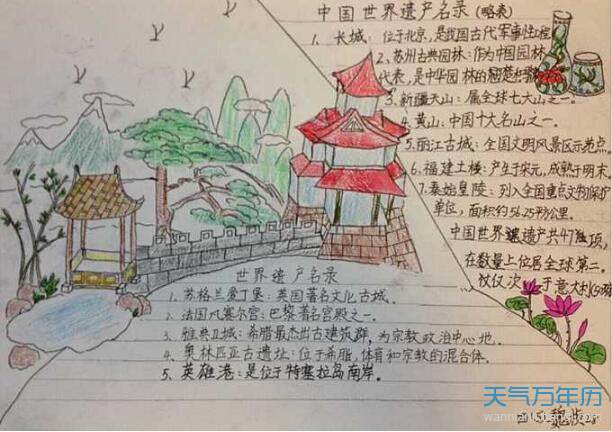 中国世界遗产名录(略表)
1、长城：位于北京，是我国古代军事性工程
2、苏州古典园林：作为中国园林
代表，是中华园林的
3、新疆天山：属全球七大山之一。
4、黄山：中国十大名山之一。
5、丽江古城：全国文明风景区示范点。
6、福建土楼：产生于宋元，成熟于明末
7、秦始皇陵：列入全国重点文物保护
单位，面积约56.25平方公里。
中国世界遗产共47项，
在数量上位居全球第二，
仅仅次于意大利
世界遗产名录
1、苏格兰爱丁堡：英国著名文化古城。
2、法国凡赛尔宫：巴黎著名宫殿之一。
3、雅典卫城：希腊最杰出古建筑群，为宗教政治中心地。
4、奥林匹亚古遗址：位于希腊，体育和宗教的混合体。
5、英雄港：是位于特塞拉岛南岸。
天气万年历